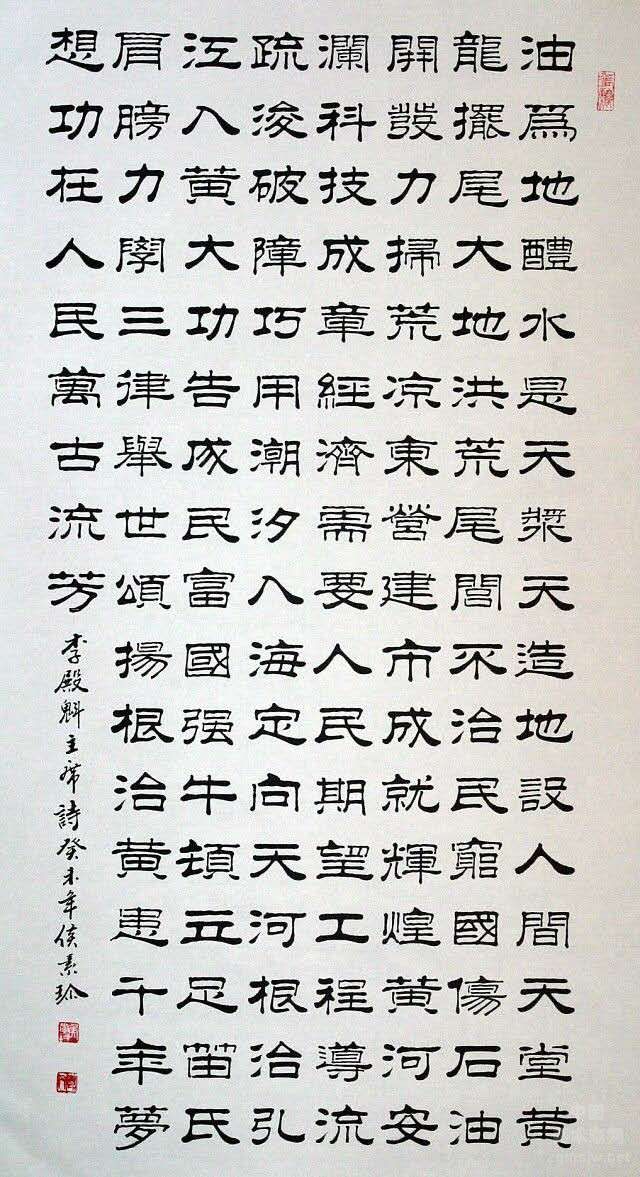 油為地醴水是天漿天造地設人間天堂黃
龍擺尾大地洪荒尾閭不治民窮國傷石油
開發力掃荒涼東營建市成就輝煌黃河安
瀾科技成章經濟需要人民期望工程導流
疏浚破障巧用潮汐入海定向天河根治引
江入黃大功告成民富國強牛頓立足笛氏
肩膀力學三律舉世頌揚根治黃患千年夢
想功在人民萬古流芳
李殿魁主席詩癸未年侯素珍